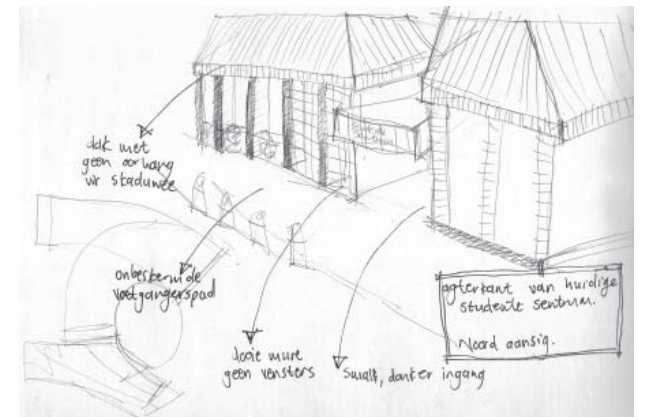 dak met
geen oorhang
vir skaduwee
onbeskermde
voetgangerspad
dooie mure
geen vensters
smal, donker ingang
agterkant van huidige
studente sentrum.
Noord aansig.